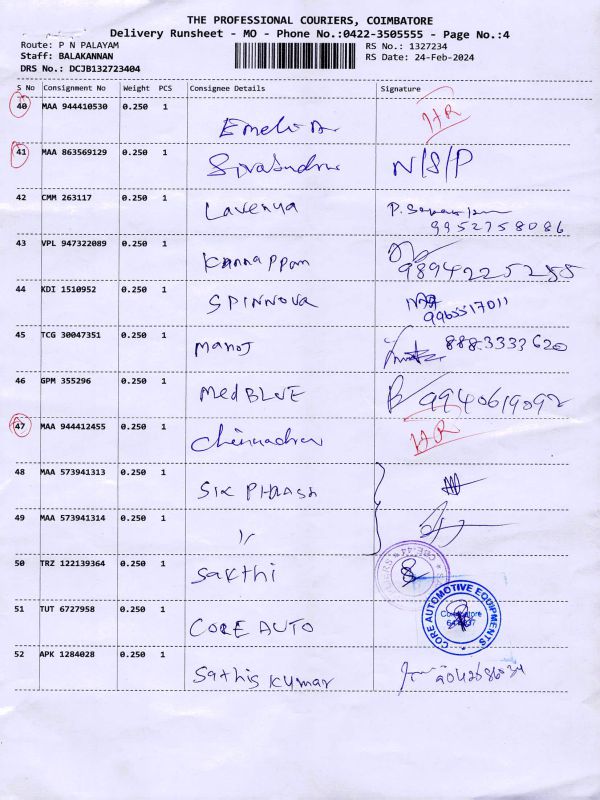 THE PROFESSIONAL COURIERS, COIMBATORE
Delivery Runsheet - MO - Phone No.:0422-3505555 - Page No.:4
Route: P N PALAYAM RS No.: 1327234
Staff: BALAKANNAN RS Date: 24-Feb-2024
DRS No.: DCJB132723404
S No Consignment No Weight PCS Consignee Details Signature
40 MAA 944410530 0.250 1
41 MAA 863569129 0.250 1 N/S/P
42 CMM 263117 0.250 1 Lavenya
9952758086
43 VPL 947322089 0.250 1 Kannappan
9894225255
44 KDI 1510952 0.250 1 SPINNOVA
9965517011
45 TCG 30047351 0.250 1 Manoj 8883333620
46 GPM 355296 0.250 1 MedBLUE 9940619092
47 MAA 944412455 0.250 1
48 MAA 573941313 0.250 1
49 MAA 573941314 0.250 1
50 TRZ 122139364 0.250 1 Sakthi
51 TUT 6727958 0.250 1 CORE AUTO
CORE AUTOMOTIVE EQUIPMENTS
Coimbatore
52 APK 1284028 0.250 1 Sathis Kumar